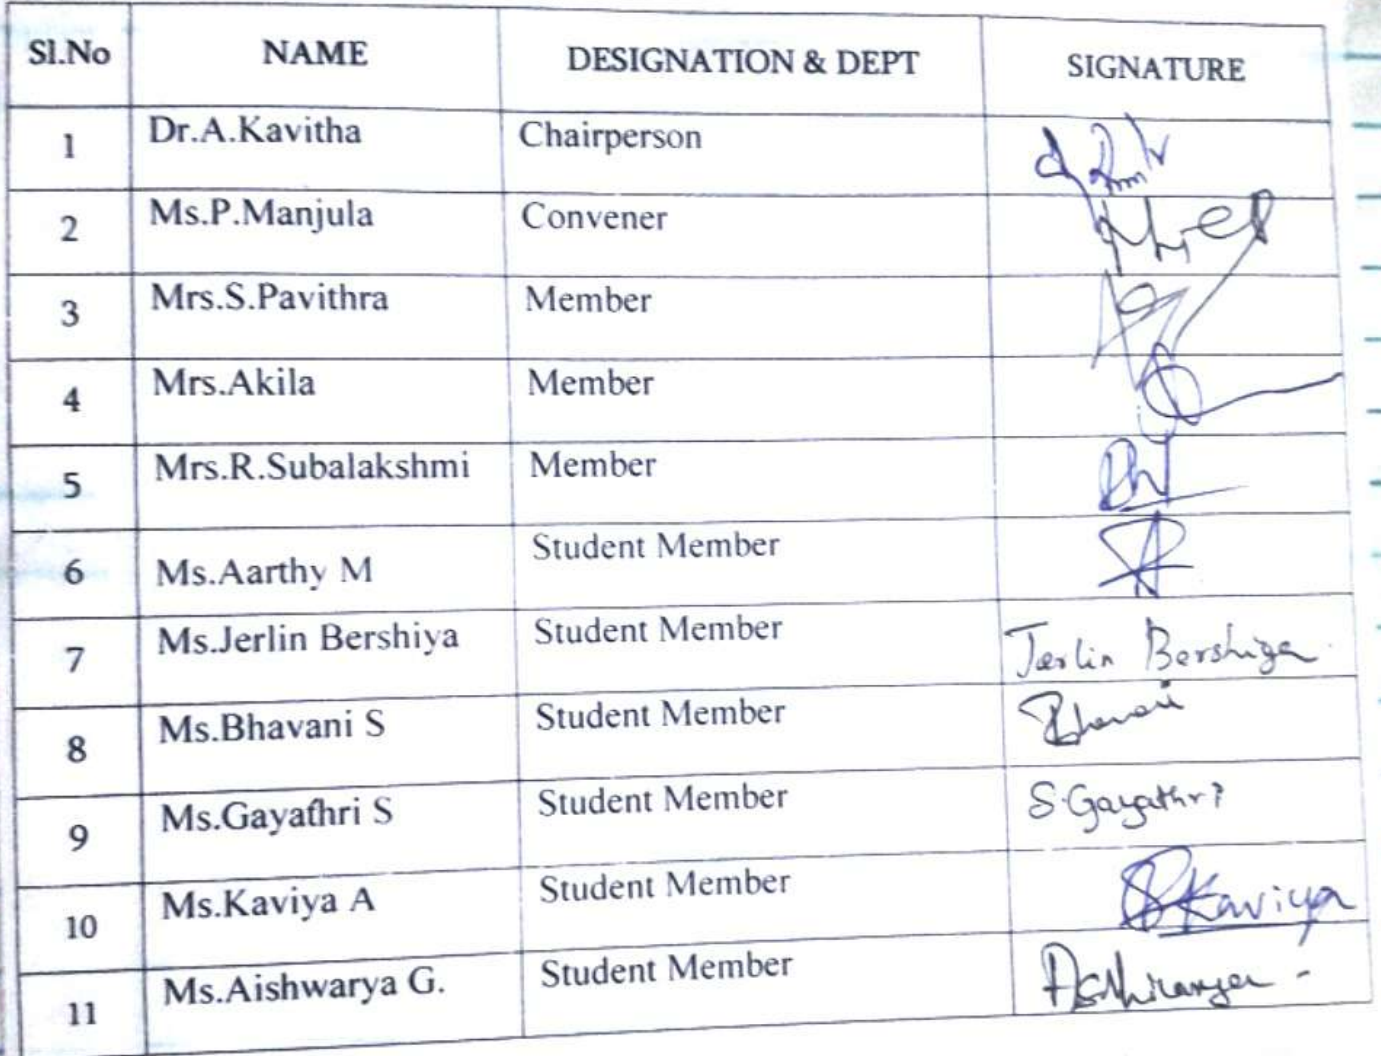 Sl.No NAME DESIGNATION & DEPT SIGNATURE
1 Dr.A.Kavitha Chairperson
2 Ms.P.Manjula Convener
3 Mrs.S.Pavithra Member
4 Mrs.Akila Member
5 Mrs.R.Subalakshmi Member
6 Ms.Aarthy M Student Member
7 Ms.Jerlin Bershiya Student Member Jerlin Bershiya
8 Ms.Bhavani S Student Member Bhavani
9 Ms.Gayathri S Student Member S.Gayathri
10 Ms.Kaviya A Student Member Kaviya
11 Ms.Aishwarya G. Student Member